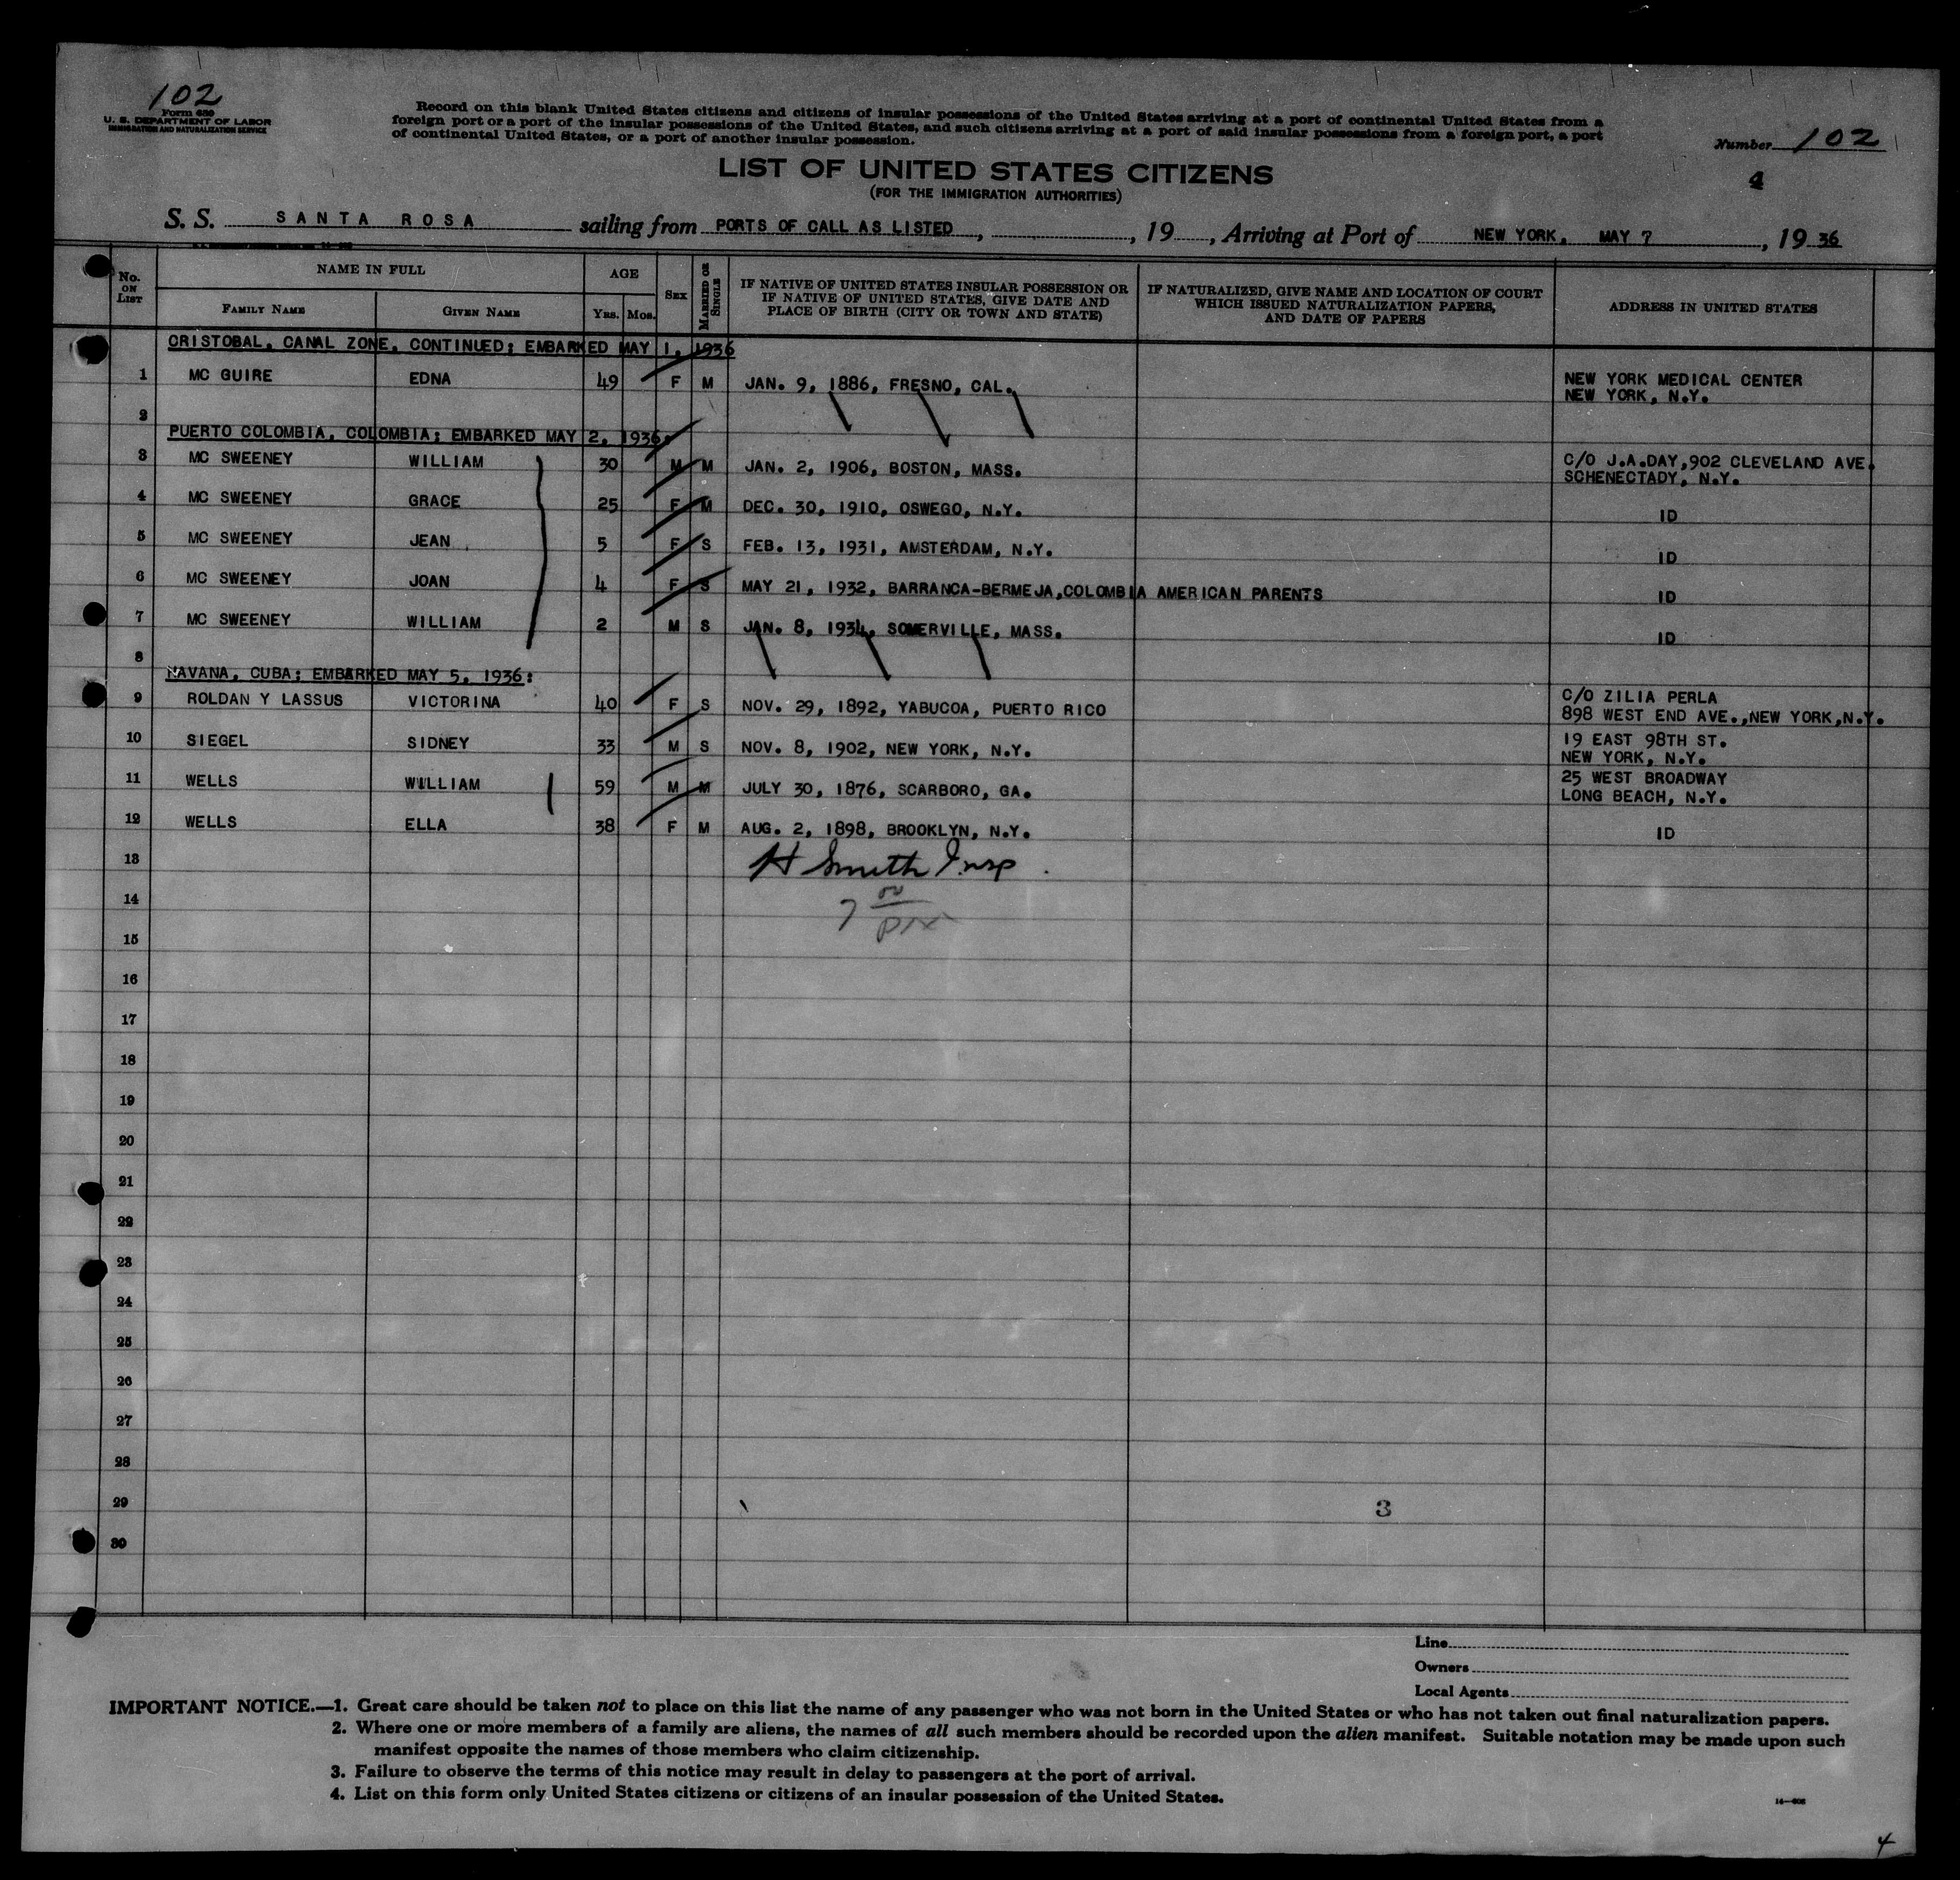 102
Form 630
U. S. DEPARTMENT OF LABOR
IMMIGRATION AND NATURALIZATION SERVICE
Record on this blank United States citizens and citizens of insular possessions of the United States arriving at a port of continental United States from a
foreign port or a port of the insular possessions of the United States, and such citizens arriving at a port of said insular possessions from a foreign port, a port
of continental United States, or a port of another insular possession.
Number 102
4
LIST OF UNITED STATES CITIZENS
(FOR THE IMMIGRATION AUTHORITIES)
S. S. SANTA ROSA sailing from PORTS OF CALL AS LISTED, , 19 , Arriving at Port of NEW YORK, MAY 7, 19 36
No. ON LIST
NAME IN FULL
FAMILY NAME GIVEN NAME
AGE
YRS. MOS.
SEX
MARRIED OR SINGLE
IF NATIVE OF UNITED STATES INSULAR POSSESSION OR
IF NATIVE OF UNITED STATES, GIVE DATE AND
PLACE OF BIRTH (CITY OR TOWN AND STATE)
IF NATURALIZED, GIVE NAME AND LOCATION OF COURT
WHICH ISSUED NATURALIZATION PAPERS,
AND DATE OF PAPERS
ADDRESS IN UNITED STATES
CRISTOBAL, CANAL ZONE, CONTINUED; EMBARKED MAY 1, 1936
1 MC GUIRE EDNA 49 F M JAN. 9, 1886, FRESNO, CAL. NEW YORK MEDICAL CENTER
NEW YORK, N.Y.
2
PUERTO COLOMBIA, COLOMBIA; EMBARKED MAY 2, 1936:
3 MC SWEENEY WILLIAM 30 M M JAN. 2, 1906, BOSTON, MASS. C/O J.A.DAY,902 CLEVELAND AVE.
SCHENECTADY, N.Y.
4 MC SWEENEY GRACE 25 F M DEC. 30, 1910, OSWEGO, N.Y. ID
5 MC SWEENEY JEAN 5 F S FEB. 13, 1931, AMSTERDAM, N.Y. ID
6 MC SWEENEY JOAN 4 F S MAY 21, 1932, BARRANCA-BERMEJA,COLOMBIA AMERICAN PARENTS ID
7 MC SWEENEY WILLIAM 2 M S JAN. 8, 1934, SOMERVILLE, MASS. ID
8
HAVANA, CUBA; EMBARKED MAY 5, 1936:
9 ROLDAN Y LASSUS VICTORINA 40 F S NOV. 29, 1892, YABUCOA, PUERTO RICO C/O ZILIA PERLA
898 WEST END AVE.,NEW YORK,N.Y.
10 SIEGEL SIDNEY 33 M S NOV. 8, 1902, NEW YORK, N.Y. 19 EAST 98TH ST.
NEW YORK, N.Y.
11 WELLS WILLIAM 59 M M JULY 30, 1876, SCARBORO, GA. 25 WEST BROADWAY
LONG BEACH, N.Y.
12 WELLS ELLA 38 F M AUG. 2, 1898, BROOKLYN, N.Y. ID
13 H Smith Insp.
14 7 00
PM
15
16
17
18
19
20
21
22
23
24
25
26
27
28
29 3
30
Line
Owners
Local Agents
IMPORTANT NOTICE.—1. Great care should be taken not to place on this list the name of any passenger who was not born in the United States or who has not taken out final naturalization papers.
2. Where one or more members of a family are aliens, the names of all such members should be recorded upon the alien manifest. Suitable notation may be made upon such
manifest opposite the names of those members who claim citizenship.
3. Failure to observe the terms of this notice may result in delay to passengers at the port of arrival.
4. List on this form only United States citizens or citizens of an insular possession of the United States.
4